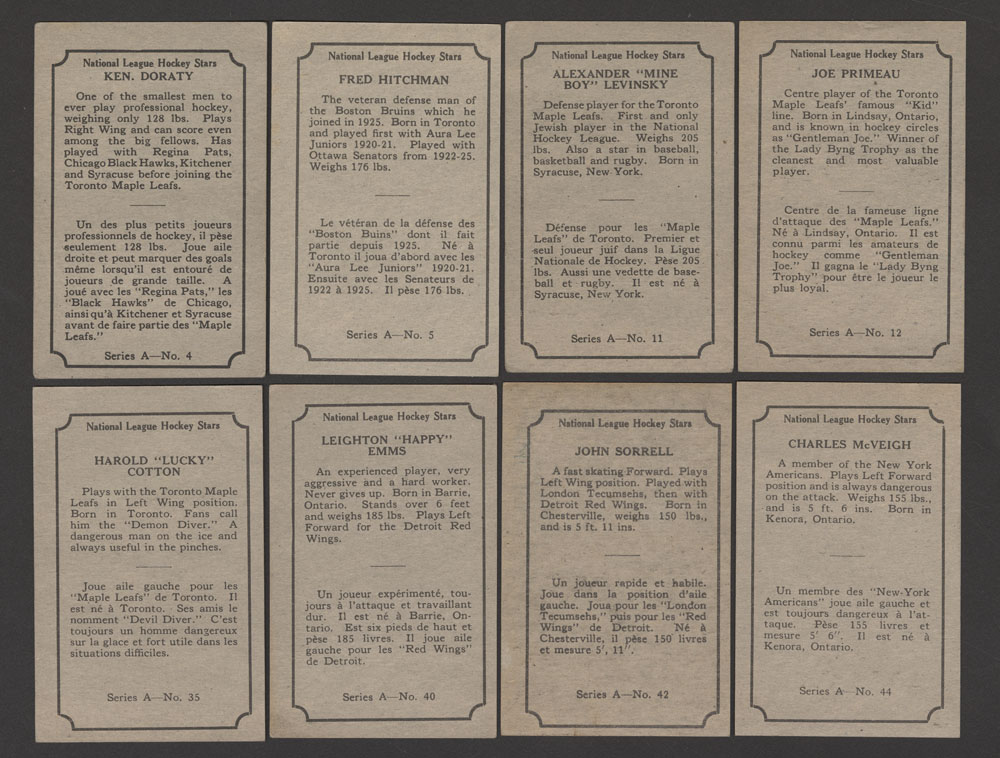 National League Hockey Stars
KEN. DORATY
One of the smallest men to
ever play professional hockey,
weighing only 128 lbs. Plays
Right Wing and can score even
among the big fellows. Has
played with Regina Pats,
Chicago Black Hawks, Kitchener
and Syracuse before joining the
Toronto Maple Leafs.
Un des plus petits joueurs
professionnels de hockey, il pèse
seulement 128 lbs. Joue aile
droite et peut marquer des goals
même lorsqu'il est entouré de
joueurs de grande taille. A
joué avec les "Regina Pats," les
"Black Hawks" de Chicago,
ainsi qu'à Kitchener et Syracuse
avant de faire partie des "Maple
Leafs."
Series A—No. 4
National League Hockey Stars
FRED HITCHMAN
The veteran defense man of
the Boston Bruins which he
joined in 1925. Born in Toronto
and played first with Aura Lee
Juniors 1920-21. Played with
Ottawa Senators from 1922-25.
Weighs 176 lbs.
Le vétéran de la défense des
"Boston Buins" dont il fait
partie depuis 1925. Né à
Toronto il joua d'abord avec les
"Aura Lee Juniors" 1920-21.
Ensuite avec les Senateurs de
1922 à 1925. Il pèse 176 lbs.
Series A—No. 5
National League Hockey Stars
ALEXANDER "MINE
BOY" LEVINSKY
Defense player for the Toronto
Maple Leafs. First and only
Jewish player in the National
Hockey League. Weighs 205
lbs. Also a star in baseball,
basketball and rugby. Born in
Syracuse, New York.
Défense pour les "Maple
Leafs" de Toronto. Premier et
seul joueur juif dans la Ligue
Nationale de Hockey. Pèse 205
lbs. Aussi une vedette de base-
ball et rugby. Il est né à
Syracuse, New York.
Series A—No. 11
National League Hockey Stars
JOE PRIMEAU
Centre player of the Toronto
Maple Leafs' famous "Kid"
line. Born in Lindsay, Ontario,
and is known in hockey circles
as "Gentleman Joe." Winner of
the Lady Byng Trophy as the
cleanest and most valuable
player.
Centre de la fameuse ligne
d'attaque des "Maple Leafs."
Né à Lindsay, Ontario. Il est
connu parmi les amateurs de
hockey comme "Gentleman
Joe." Il gagna le "Lady Byng
Trophy" pour être le joueur le
plus loyal.
Series A—No. 12
National League Hockey Stars
HAROLD "LUCKY"
COTTON
Plays with the Toronto Maple
Leafs in Left Wing position.
Born in Toronto. Fans call
him the "Demon Diver." A
dangerous man on the ice and
always useful in the pinches.
Joue aile gauche pour les
"Maple Leafs" de Toronto. Il
est né à Toronto. Ses amis le
nomment "Devil Diver." C'est
toujours un homme dangereux
sur la glace et fort utile dans les
situations difficiles.
Series A—No. 35
National League Hockey Stars
LEIGHTON "HAPPY"
EMMS
An experienced player, very
aggressive and a hard worker.
Never gives up. Born in Barrie,
Ontario. Stands over 6 feet
and weighs 185 lbs. Plays Left
Forward for the Detroit Red
Wings.
Un joueur expérimenté, tou-
jours à l'attaque et travaillant
dur. Il est né à Barrie, On-
tario. Est six pieds de haut et
pèse 185 livres. Il joue aile
gauche pour les "Red Wings"
de Detroit.
Series A—No. 40
National League Hockey Stars
JOHN SORRELL
A fast skating Forward. Plays
Left Wing position. Played with
London Tecumsehs, then with
Detroit Red Wings. Born in
Chesterville, weighs 150 lbs.,
and is 5 ft. 11 ins.
Un joueur rapide et habile.
Joue dans la position d'aile
gauche. Joua pour les "London
Tecumsehs," puis pour les "Red
Wings" de Detroit. Né à
Chesterville, il pèse 150 livres
et mesure 5', 11".
Series A—No. 42
National League Hockey Stars
CHARLES McVEIGH
A member of the New York
Americans. Plays Left Forward
position and is always dangerous
on the attack. Weighs 155 lbs.,
and is 5 ft. 6 ins. Born in
Kenora, Ontario.
Un membre des "New-York
Americans" joue aile gauche et
est toujours dangereux à l'at
taque. Pèse 155 livres et
mesure 5' 6". Il est né à
Kenora, Ontario.
Series A—No. 44